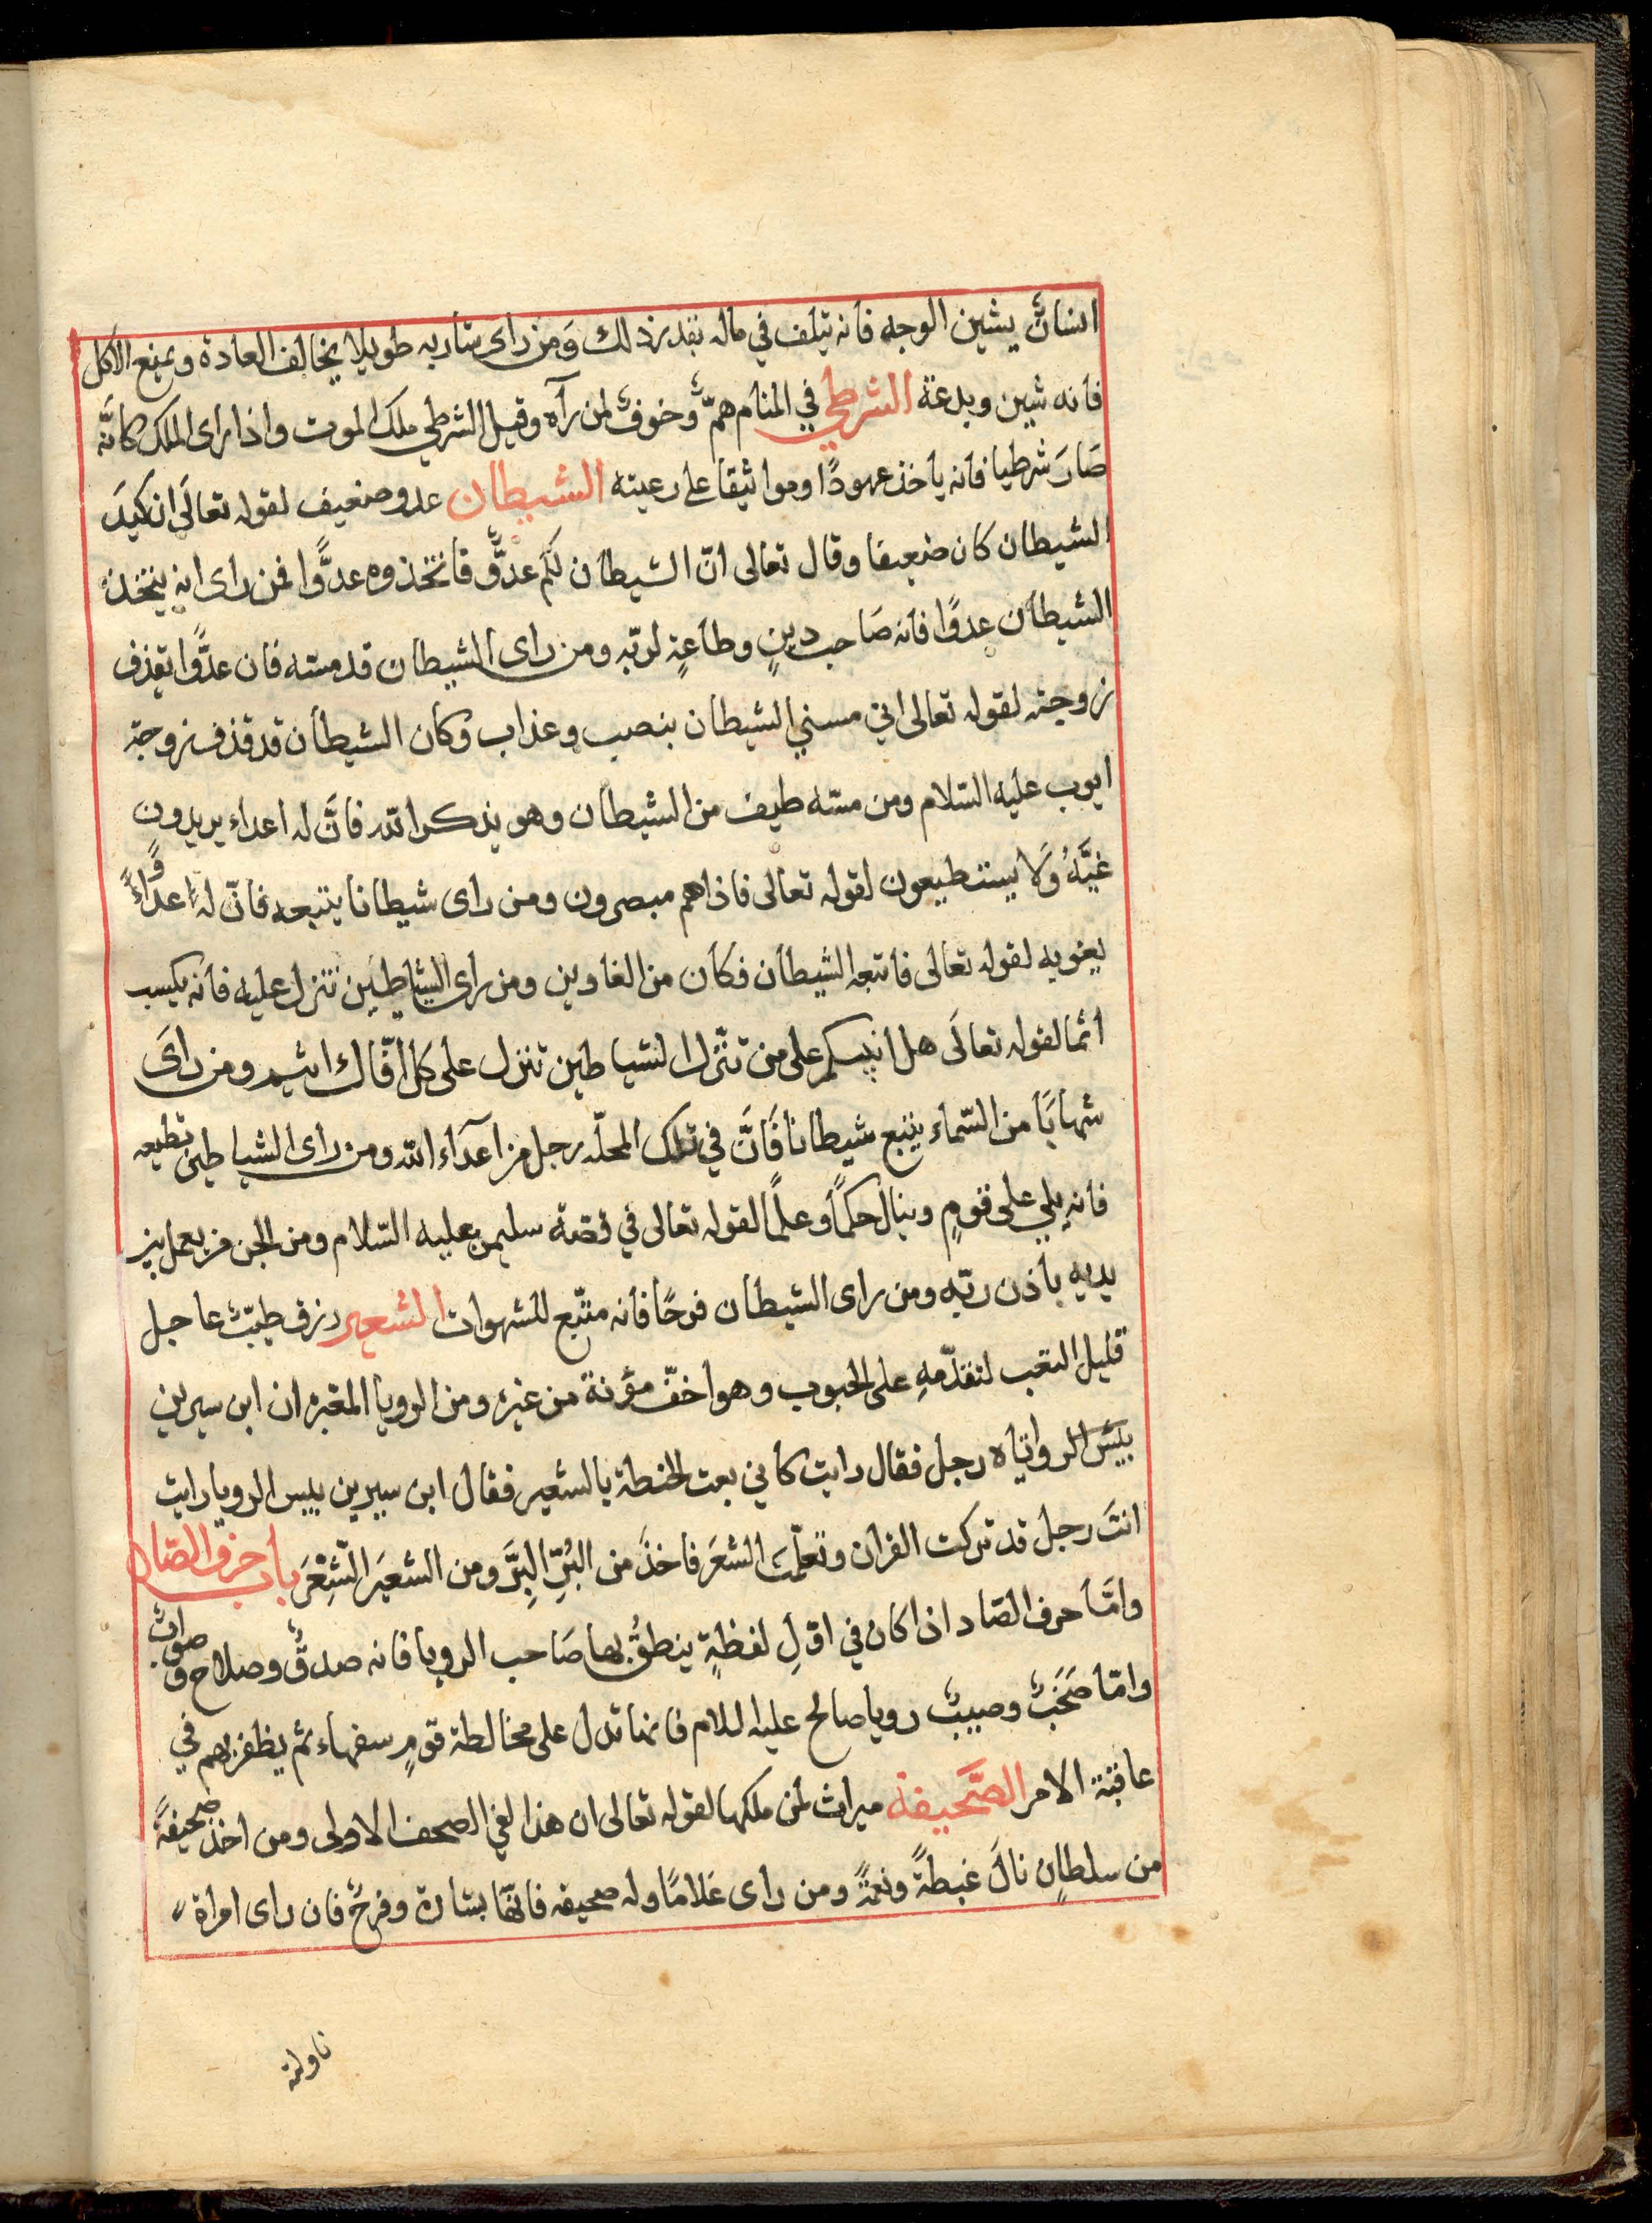 انسانٌ يشين الوجه فانه يتلف في ماله بقدر ذلك ومن راى شاربه طويلا يخالف العادة ويمنع الاكل
فانه شين وبدعة الشرطي في المنام همّ وخوفٌ لمن رآه وقيل الشرطي ملك الموت واذا راى الملك كانّه
صَارَ شرطيا فانه ياخذ عهودًا ومواثيقا على رعيته الشيطان عدو ضعيف لقوله تعالَى ان كيدَ
الشيطان كان ضعيفا وقال تعالى انّ الشيطان لكم عدوٌّ فاتخذوه عدوًّا فمن راى انه يتخذ
الشيطان عدوًّا فانه صَاحب دينٍ وطاعةٍ لربّه ومن راى الشيطان قد مسّه فان عدوًّا يقذف
زوجته لقوله تعالى اني مسني الشيطان بنصب وعذاب وكان الشيطان قد قذف زوجة
ايوب عليه السّلام ومن مسّه طيف من الشيطان وهو يذكر الله فانَّ له اعداء يريدون
غيَّهُ وَلَا يستطيعون لقوله تعالى فاذا هم مبصرون ومن راى شيطانا يتبعه فانّ له عدوًّا
يغويه لقوله تعالى فاتبعه الشيطان فكان من الغاوين ومن راى الشياطين تنزل عليه فانه يكسب
اثما لقوله تعالَى هل انبيكم على من تنزّل الشياطين تنزل على كل افّاك اثيم ومن راىَ
شهابًا من السّماء يتبع شيطانا فَانَّ في تلك المحلّه رجل من اعدَاء الله ومن راى الشياطين تطيعه
فانه يلي على قومٍ وينال حكمًا وعلمًا لقوله تعالى في قصّة سليمن عليه السّلام ومن الجن من يعمل بين
يديه باذن ربّه ومن راى الشيطان فرحًا فانه متّبع للشهوات الشعير رزق طيّبٌ عاجل
قليل التعب لتقدّمهِ على الحبوب وهو اخفّ مؤنة من غيره ومن الرويا المعبّره ان ابن سيرين
اتاه رجل فقال رايت كاني بعت الحنطة بالشعير فقال ابن سيرين بيس الرويا رايت
انتَ رجل قد تركت القران وتعلّمتَ الشعَر فاخذَ من البُرِّ البِرَّ ومن الشعيَر الشِعْرَ باب حرف الصّاد
وامَّا حرف الصّاد اذا كان في اوّلِ لفظةٍ ينطقُ بها صَاحب الرويا فانه صدقٌ وصلاح وصوابٌ
وامّا صَخَبٌ وصبيبٌ رويا صالح عليه السلام فانها تدل على مخالطة قومٍ سفهاء ثم يظفر بهم في
عاقبة الامر الصَّحيفة ميراث لمن ملكها لقوله تعالى ان هذا لفي الصحف الاولى ومن اخذ صحيفةً
من سلطانٍ نالَ غبطةً ونعمةً ومن راى غلامًا وله صحيفه فانّها بشارة وفرحٌ فان راى امراة
ناولته